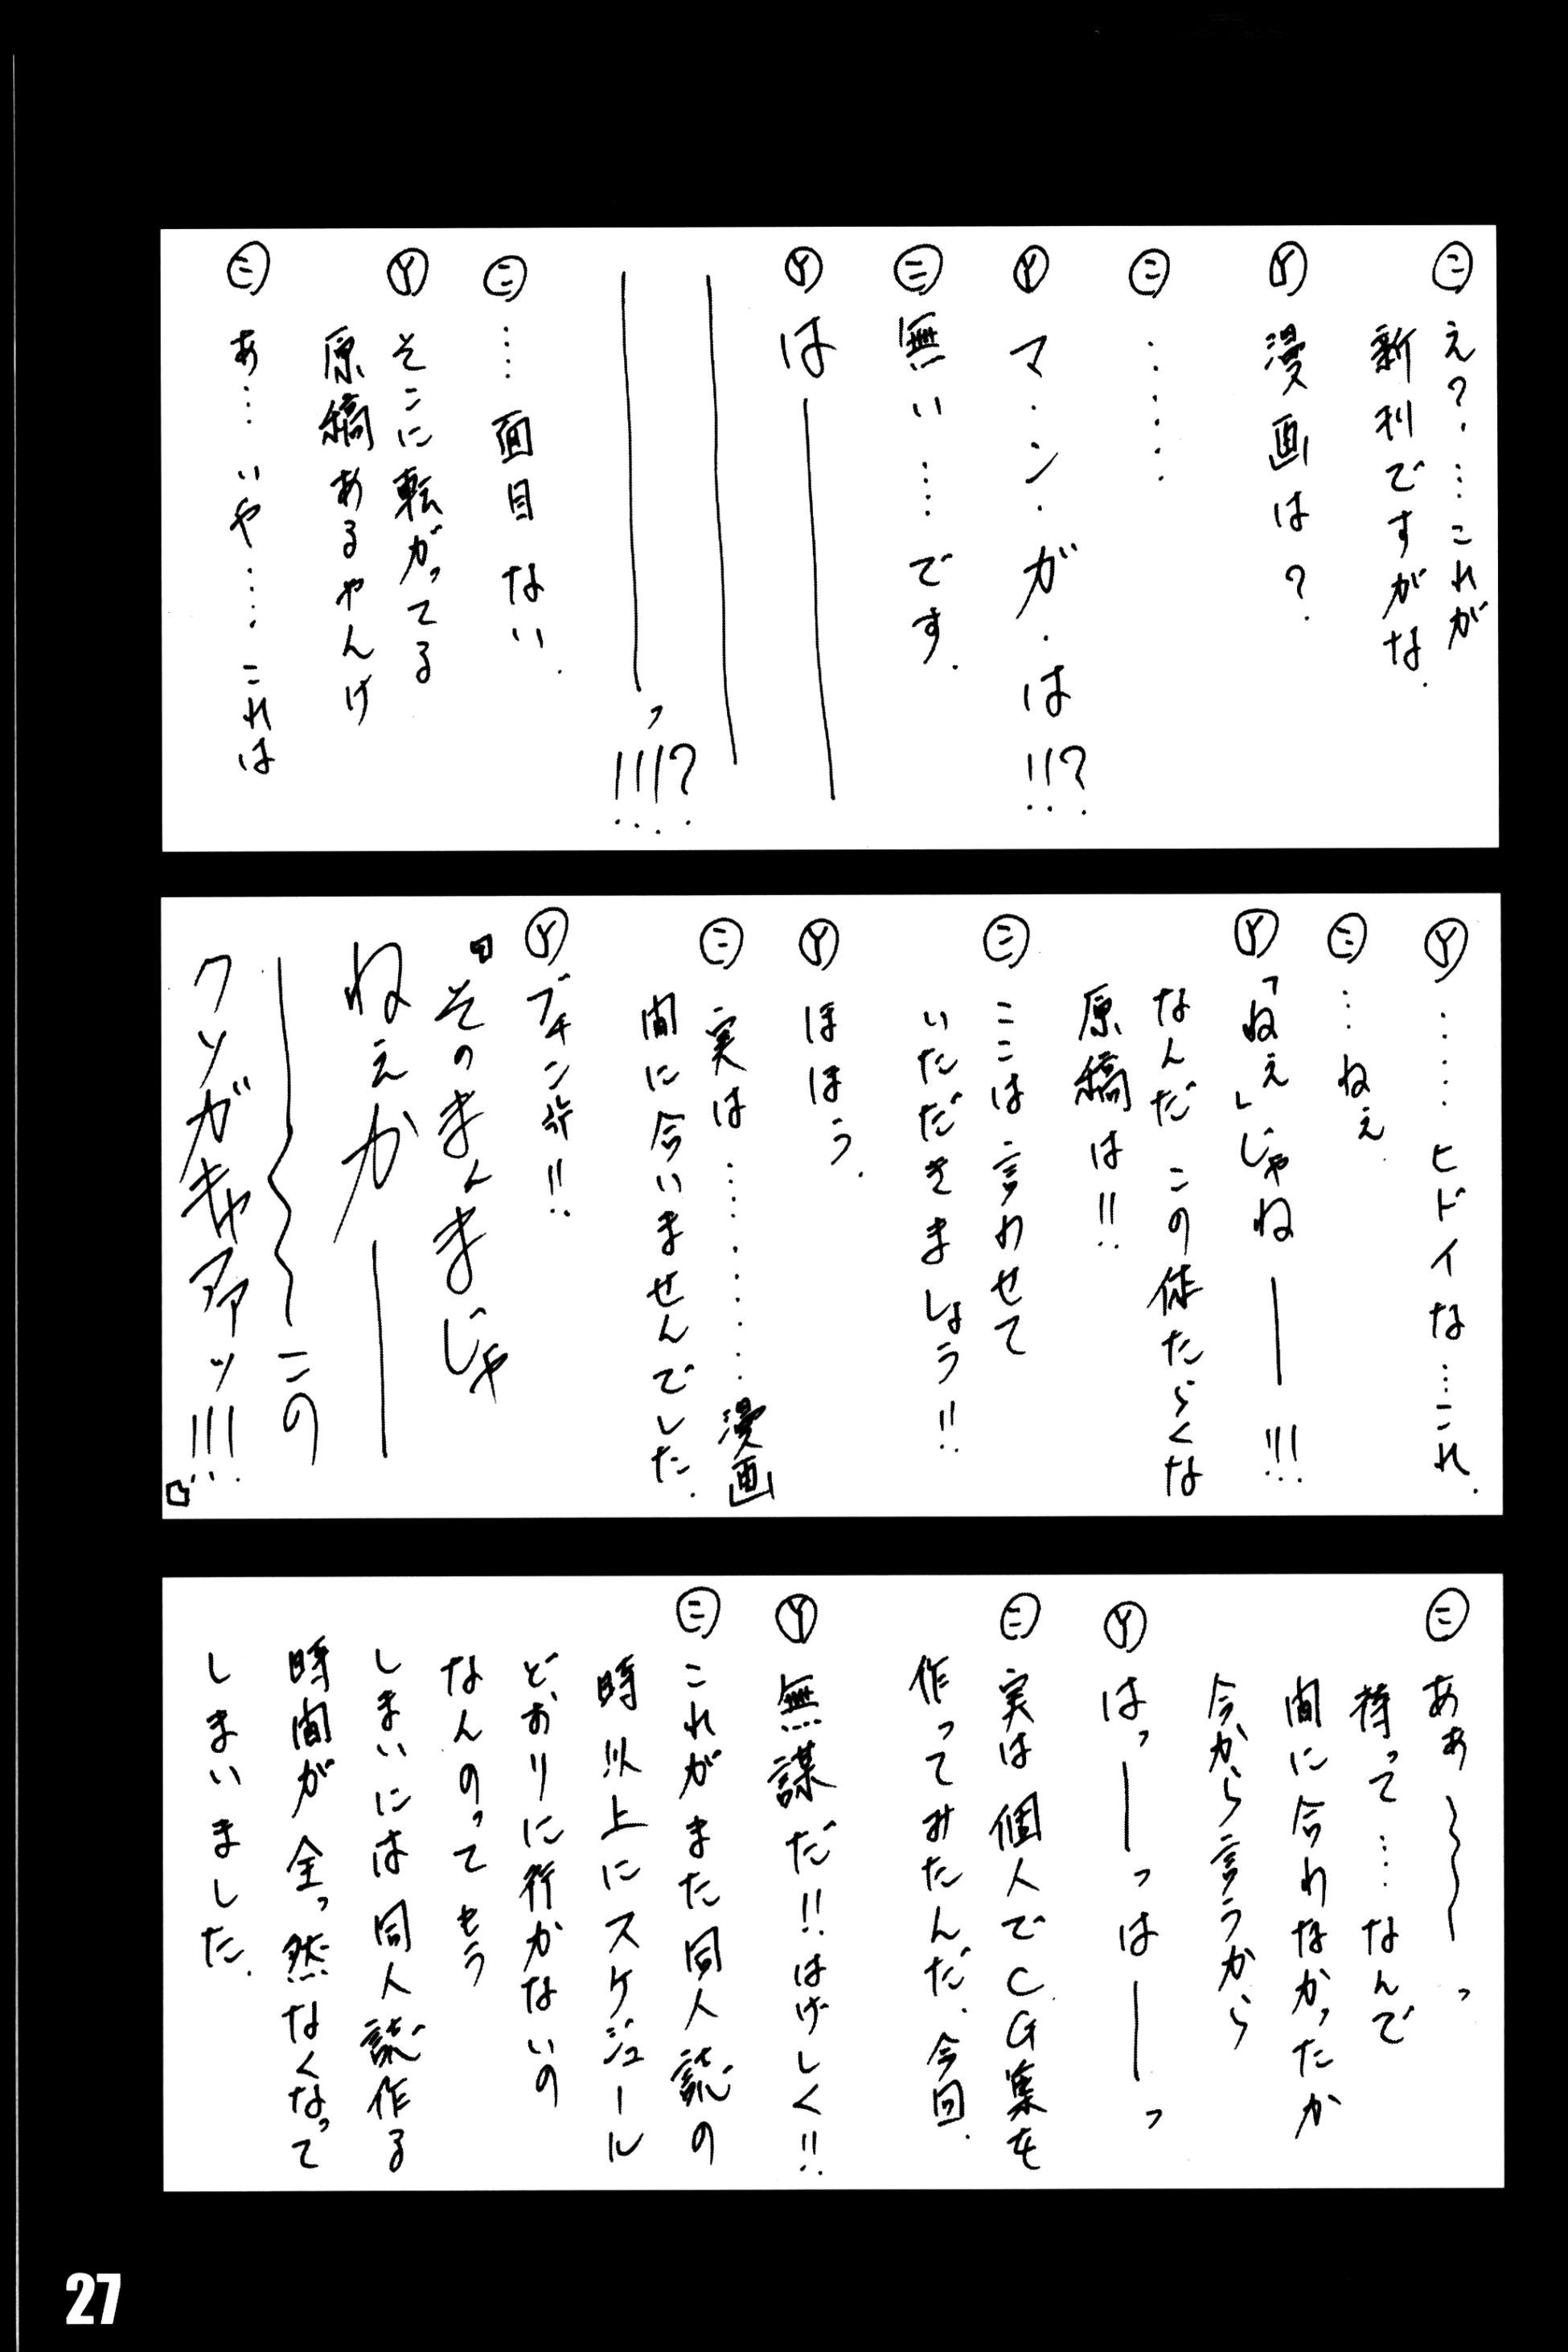 ㋥ え?…これが
新刊ですがな.
Ⓨ 漫画は?
㋥ ……
Ⓨ マ・ン・ガ・は!!?
㋥ 無い…です.
Ⓨ は――
――
――っ!!!?
㋥ …面目ない.
Ⓨ そこに転がってる
原稿あるやんけ
㋥ あ…いや…これは
Ⓨ ……ヒドイな…これ.
㋥ …ねぇ
Ⓨ 「ねぇ」じゃね――!!!
なんだ この体たらくな
原稿は!!
㋥ ここは言わせて
いただきましょう!!
Ⓨ ほほう.
㋥ 実は………漫画
間に合いませんでした.
Ⓨ ブチン!!
そのまんまじゃ
ねぇか――
―〜〜この
クソガキャアァッ!!!
㋥ ああ〜〜〜っ
待って…なんで
間に合わなかったか
今から言うから
Ⓨ はっ――っは――っ
㋥ 実は個人でCG集を
作ってみたんだ.今回.
Ⓨ 無謀だ!!はげしく!!
㋥ これがまた同人誌の
時以上にスケジュール
どおりに行かないの
なんのってもう
しまいには同人誌作る
時間が全っ然なくなって
しまいました.
27